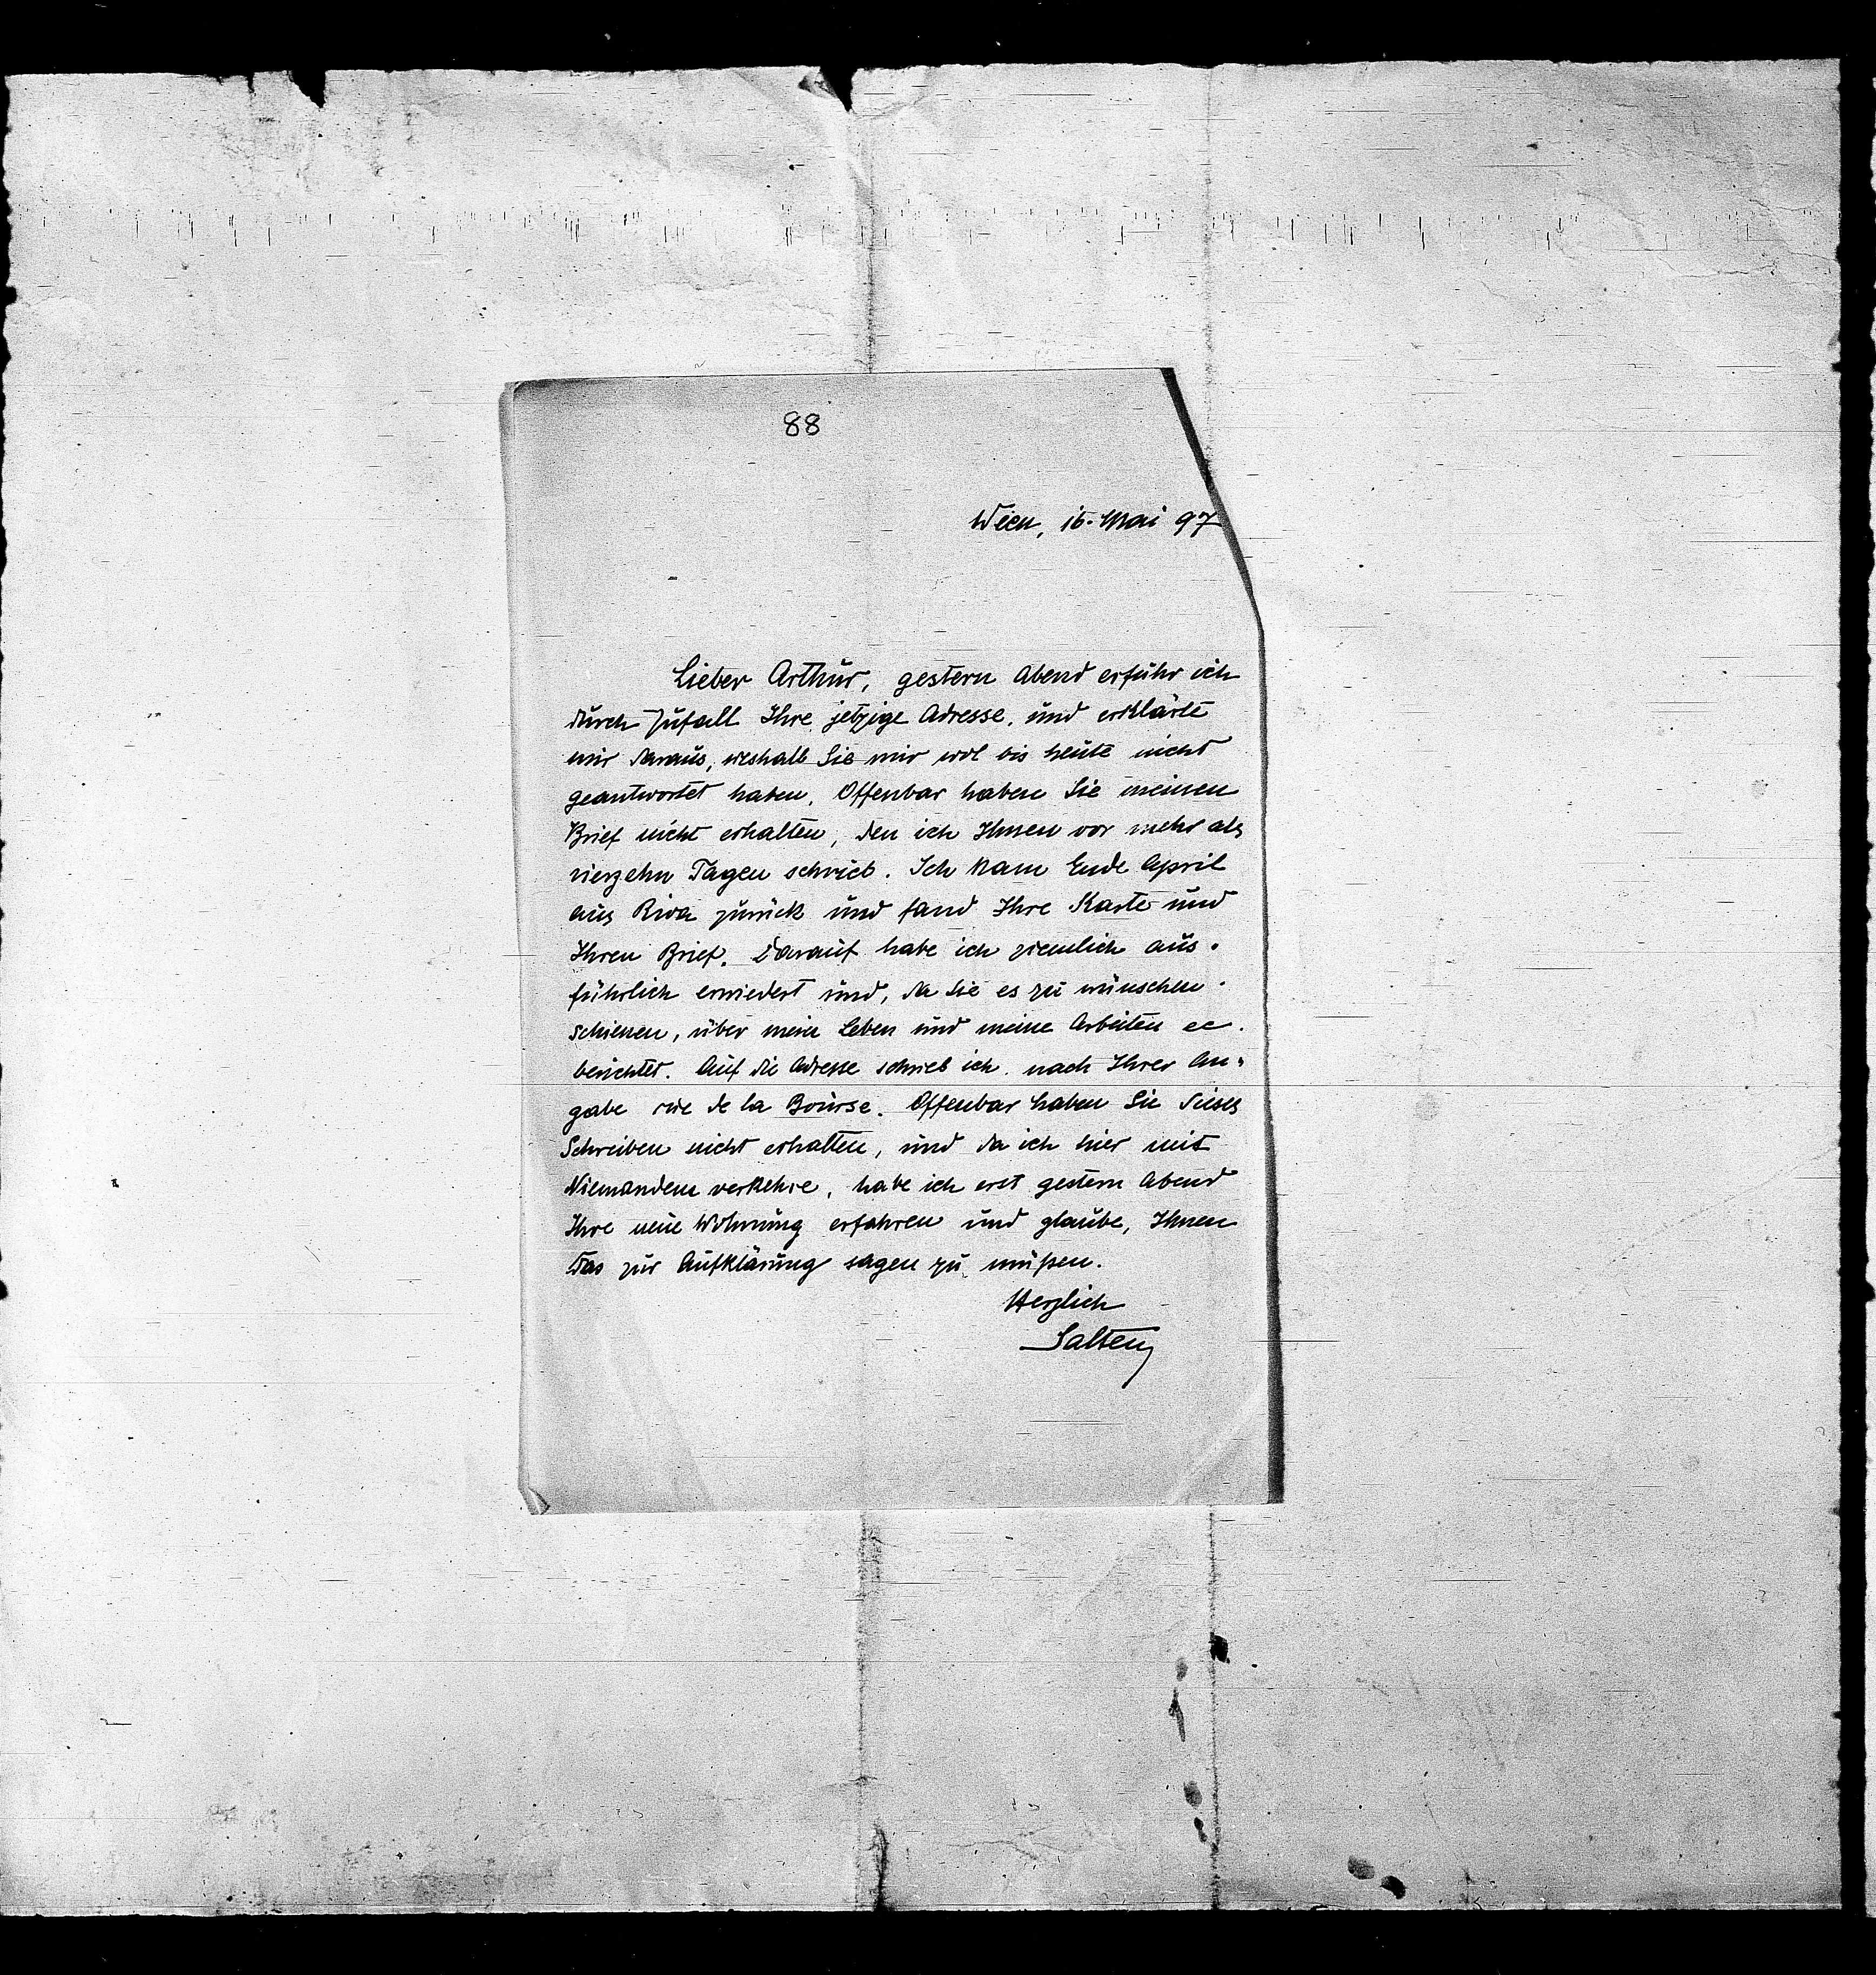 88
Wien, 16. Mai 97
Lieber Arthur, gestern Abend erfuhr ich
durch Zufall Ihre jetzige Adresse, und erklärte
mir daraus, weshalb Sie mir wol bis heute nicht
geantwortet haben. Offenbar haben Sie meinen
Brief nicht erhalten, den ich Ihnen vor mehr als
vierzehn Tagen schrieb. Ich kam Ende April
aus Riva zurück und fand Ihre Karte und
Ihren Brief. Darauf habe ich ziemlich aus-
führlich erwiedert und, da Sie es zu wünschen
schienen, über mein Leben und meine Arbeiten ec.
berichtet. Auf die Adresse schrieb ich nach Ihrer An-
gabe rue de la Bourse. Offenbar haben Sie dieses
Schreiben nicht erhalten, und da ich hier mit
Niemandem verkehre, habe ich erst gestern Abend
Ihre neue Wohnung erfahren und glaube, Ihnen
Das zur Aufklärung sagen zu müßen.
Herzlich
Salten